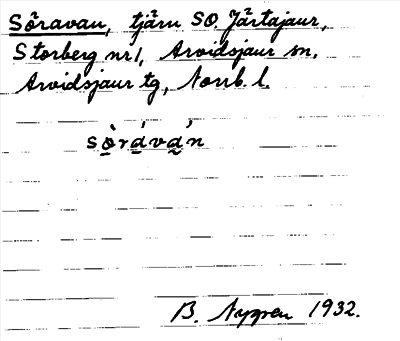 Söravan, tjärn SO. Jårtajaur,
Storberg nr 1, Arvidsjaur sn.
Arvidsjaur tg, Norrb. l.
sọ̀rạ́vạ́n
B. Nygren 1932.